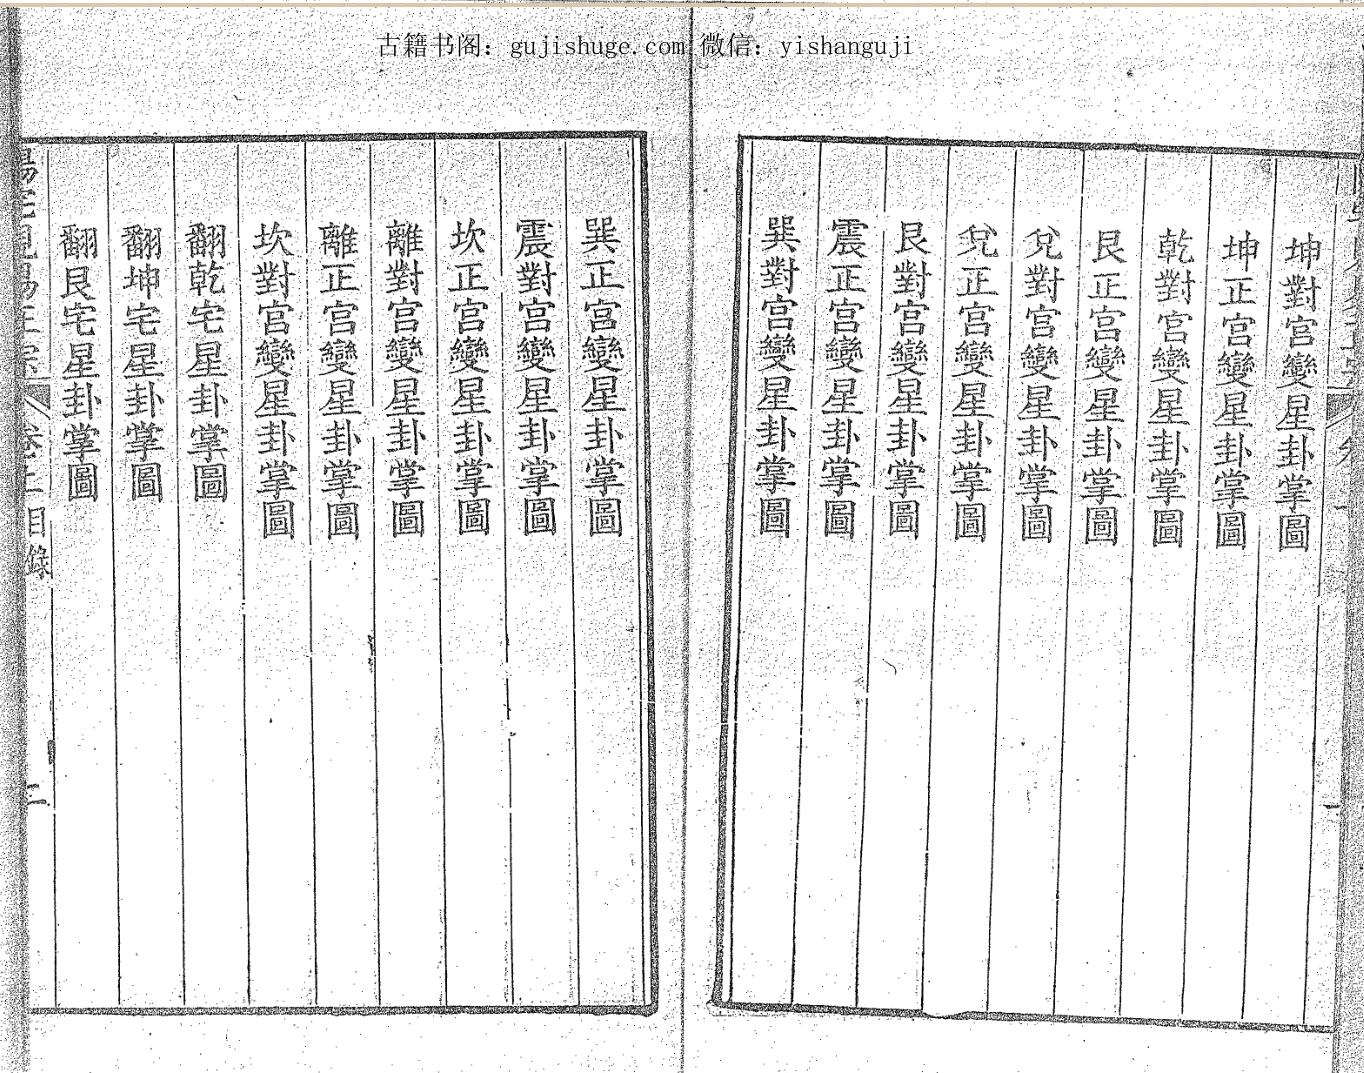 古籍书阁：gujishuge.com 微信：yishanguji
坤對宮變星卦掌圖
坤正宮變星卦掌圖
乾對宮變星卦掌圖
艮正宮變星卦掌圖
兌對宮變星卦掌圖
兌正宮變星卦掌圖
艮對宮變星卦掌圖
震正宮變星卦掌圖
巽對宮變星卦掌圖
巽正宮變星卦掌圖
震對宮變星卦掌圖
坎正宮變星卦掌圖
離對宮變星卦掌圖
離正宮變星卦掌圖
坎對宮變星卦掌圖
翻乾宅星卦掌圖
翻坤宅星卦掌圖
翻艮宅星卦掌圖
卷上目錄 二